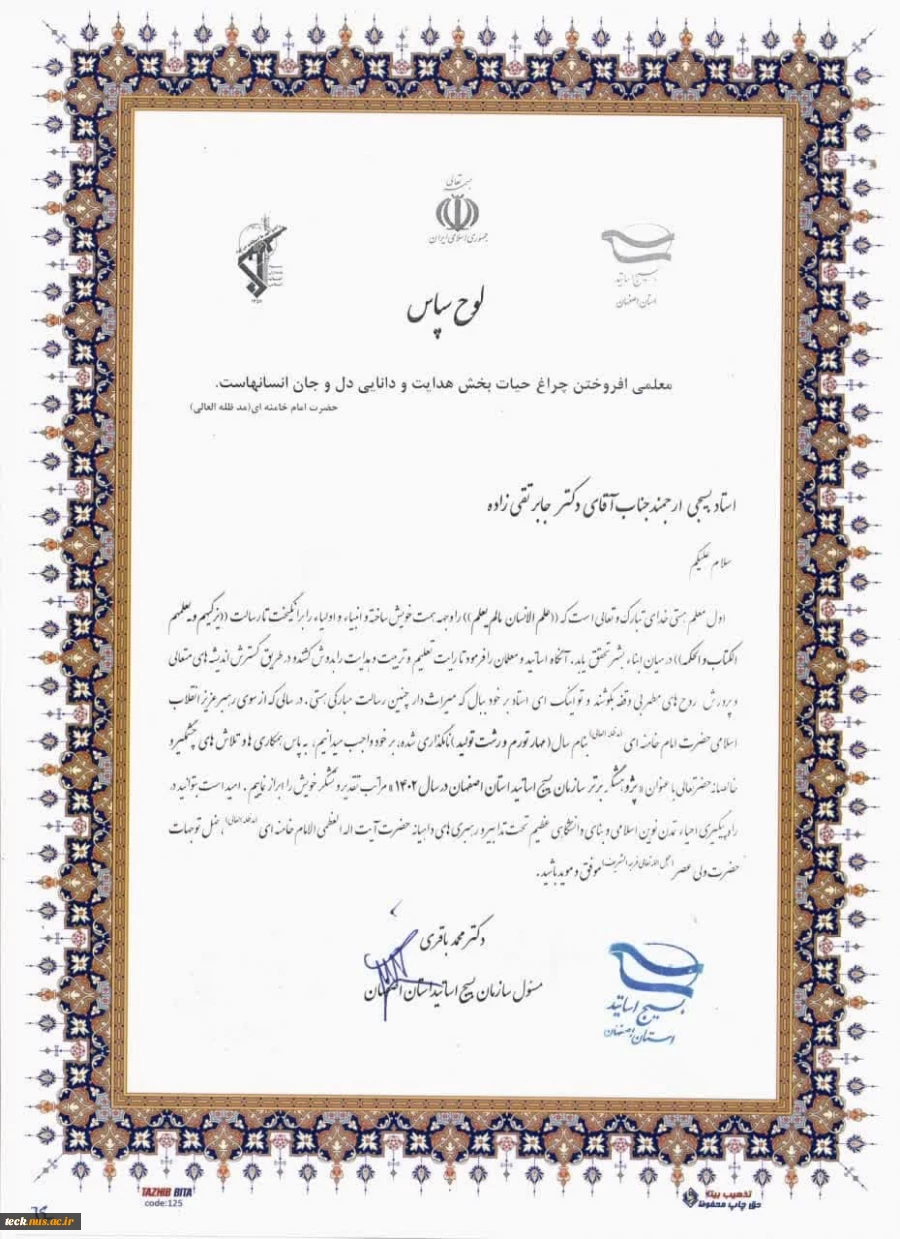 بسمه تعالی
جمهوری اسلامی ایران
بسیج اساتید
استان اصفهان
لوح سپاس
معلمی افروختن چراغ حیات بخش هدایت و دانایی دل و جان انسانهاست.
حضرت امام خامنه ای(مد ظله العالی)
استاد بسیجی ارجمند جناب آقای دکتر جابر تقی زاده
سلام علیکم
اول معلم هستی خدای تبارک و تعالی است که ((علم الانسان مالم یعلم)) را وجهه همت خویش ساخته و انبیاء و اولیاء را برانگیخت تا رسالت ((یزکیهم و یعلمهم
الکتاب و الحکمه)) در میان ابناء بشر تحقق یابد. آنگاه اساتید و معلمان را فرمود تا رایت تعلیم و تربیت و هدایت را بدوش کشند و در طریق گسترش اندیشه های متعالی
و پرورش روح های مطهر بی وقفه بکوشند و تو اینک ای استاد بر خود ببال که میراث دار چنین رسالت مبارکی هستی. در سالی که از سوی رهبر عزیز انقلاب
اسلامی حضرت امام خامنه ای (مد ظله العالی) بنام سال (مهار تورم و رشد تولید) نامگذاری شده، بر خود واجب میدانیم، به پاس همکاری ها و تلاش های چشمگیر و
خالصانه حضرتعالی با عنوان « پژوهشگر برتر سازمان بسیج اساتید استان اصفهان در سال ۱۴۰۲» مراتب تقدیر و تشکر خویش را ابراز نماییم. امید است بتوانید در
راه پیگیری احیاء تمدن نوین اسلامی و بنای دانشگاهی عظیم تحت تدابیر و رهبری های داهیانه حضرت آیت اله العظمی الامام خامنه ای (مد ظله العالی)، ظل توجهات
حضرت ولی عصر (عجل الله تعالی فرجه الشریف) موفق و موید باشید.
دکتر محمد باقری
مسئول سازمان بسیج اساتید استان اصفهان
بسیج اساتید
استان اصفهان
TAZHIB BITA
code:125
تذهیب بیتا
حق چاپ محفوظ
teck.nus.ac.ir